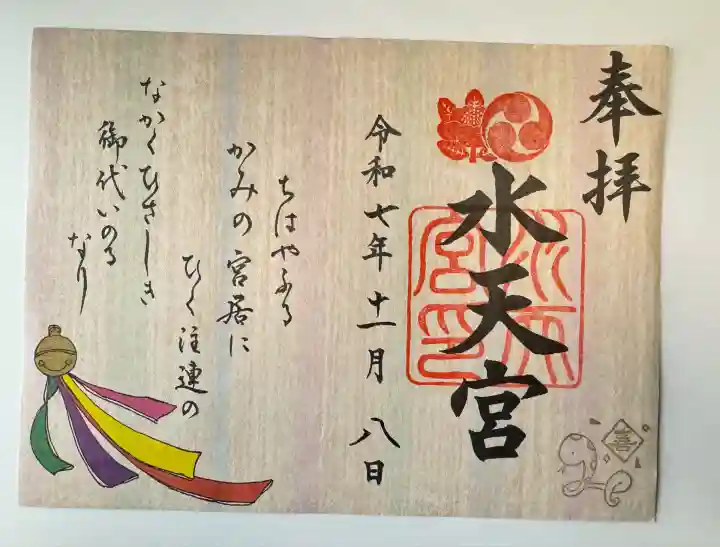 奉拝
水天宮
令和七年十一月八日
ちはやふる
かみの宮居に
ひく注連の
なかくひさしき
御代いのる
なり
喜